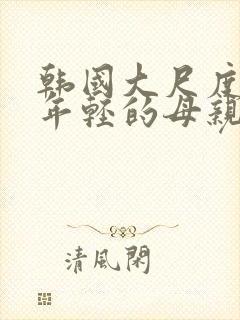 韩國大尺度
年轻的母親
清風閑